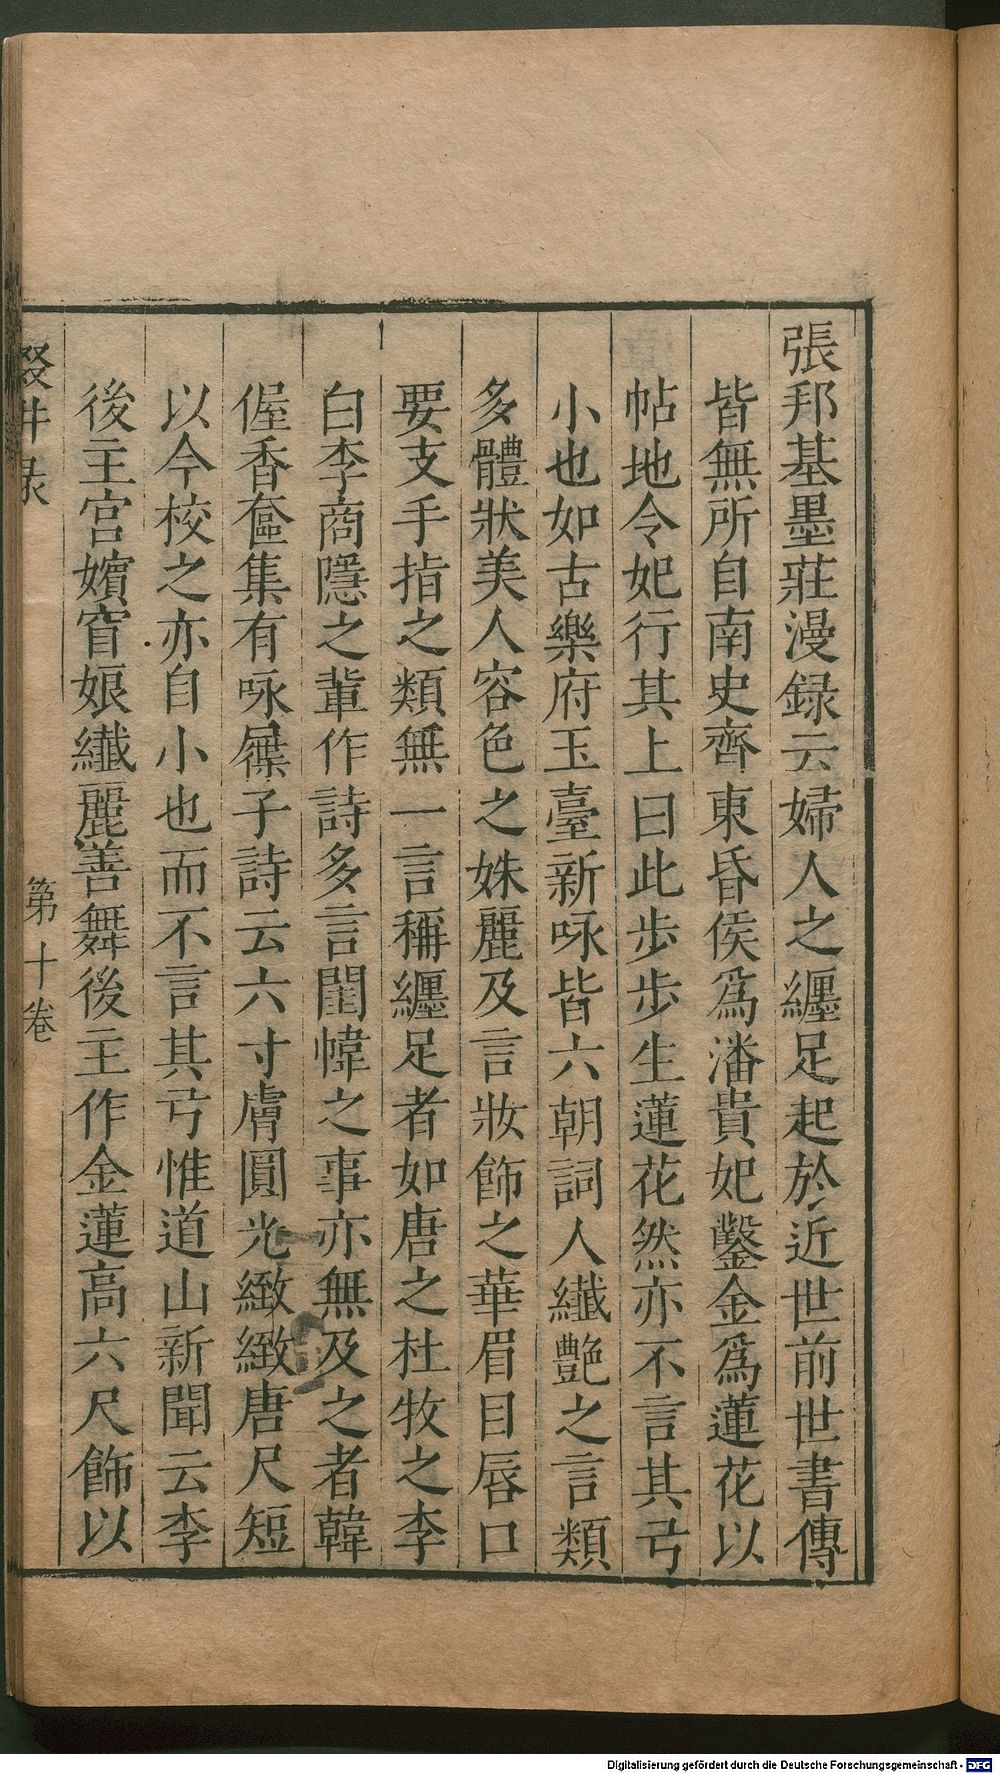 張邦基墨莊漫録云婦人之纏足起於近世前世書傳
皆無所自南史齊東昏侯爲潘貴妃鑿金爲蓮花以
帖地令妃行其上曰此步步生蓮花然亦不言其弓
小也如古樂府玉臺新咏皆六朝詞人纎艷之言類
多體狀美人容色之姝麗及言妝飾之華眉目唇口
要支手指之類無一言稱纏足者如唐之杜牧之李
白李商隱之軰作詩多言閨幃之事亦無及之者韓
偓香奩集有咏屧子詩云六寸膚圓光緻緻唐尺短
以今校之亦自小也而不言其弓惟道山新聞云李
後主宫嬪窅娘纎麗善舞後主作金蓮高六尺飾以
輟畊录
第十卷
Digitalisierung gefördert durch die Deutsche Forschungsgemeinschaft - DFG